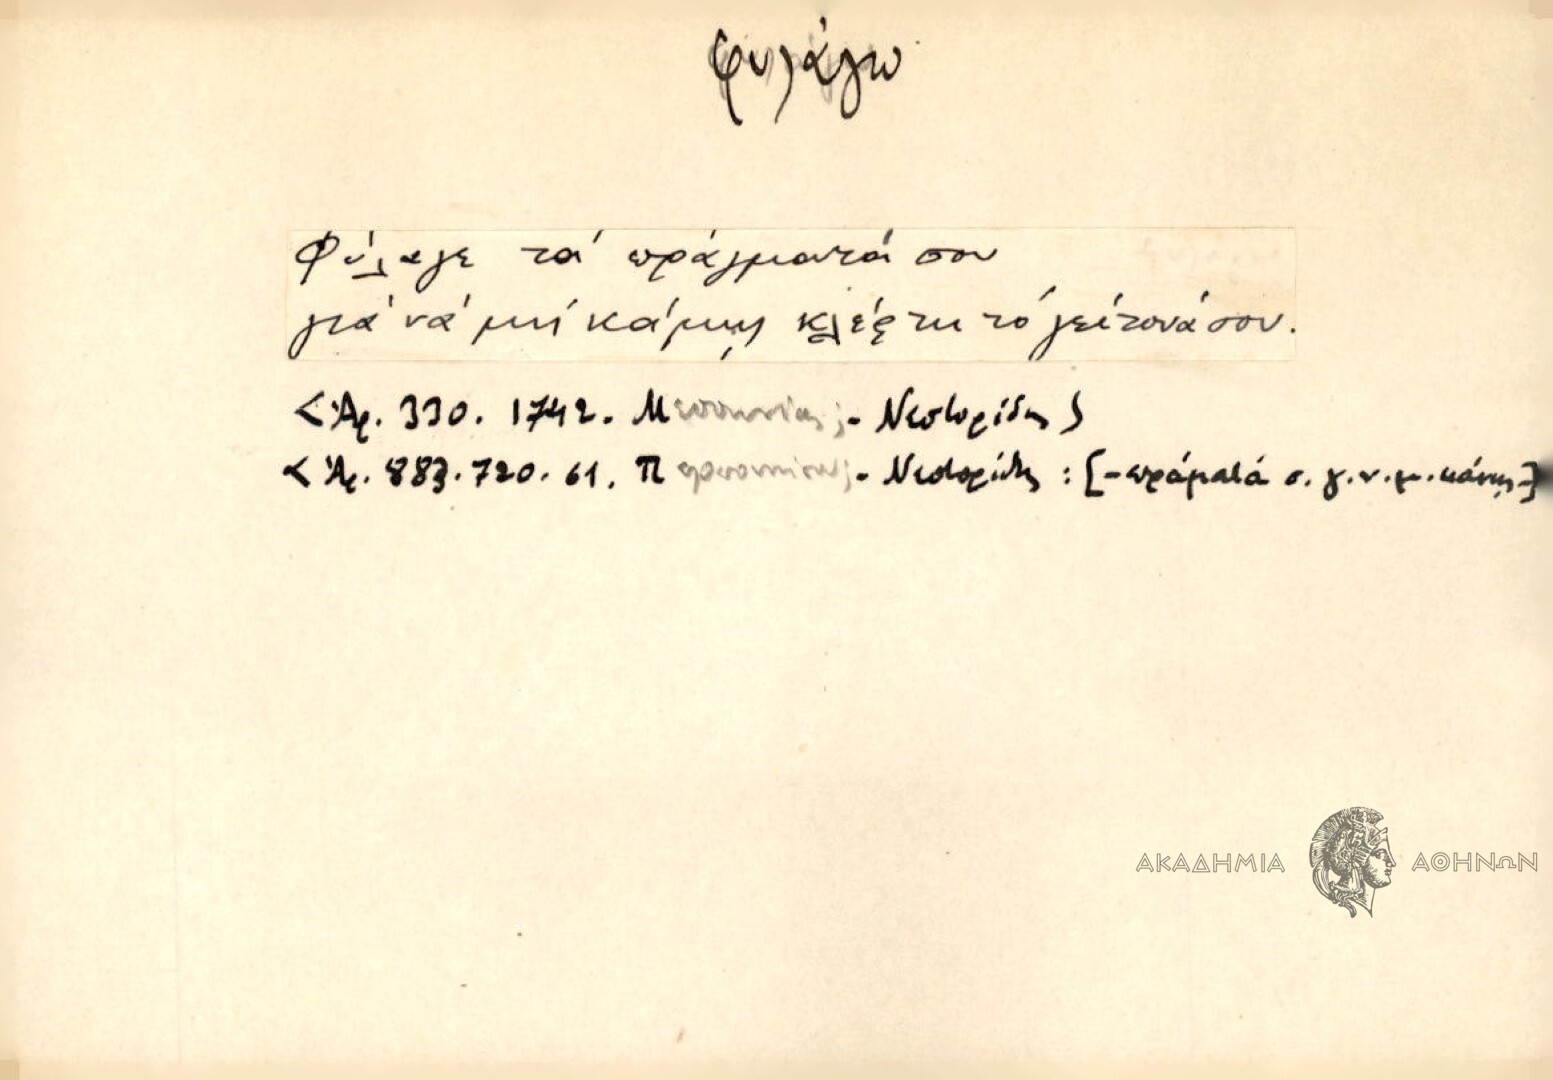 φυλάγω
Φύλαγε τά πράγματά σου
γιά νά μή κάμῃς κλέφτη τό γείτονά σου.
<Ἀρ. 330. 1742. Μεσσηνίας;- Νεστορίδης>
<Ἀρ. 883. 720. 61. Π ;- Νεστορίδης : [-πράματά σ. γ. ν. μ. κάνῃς-]
ΑΚΑΔΗΜΙΑ ΑΘΗΝΩΝ